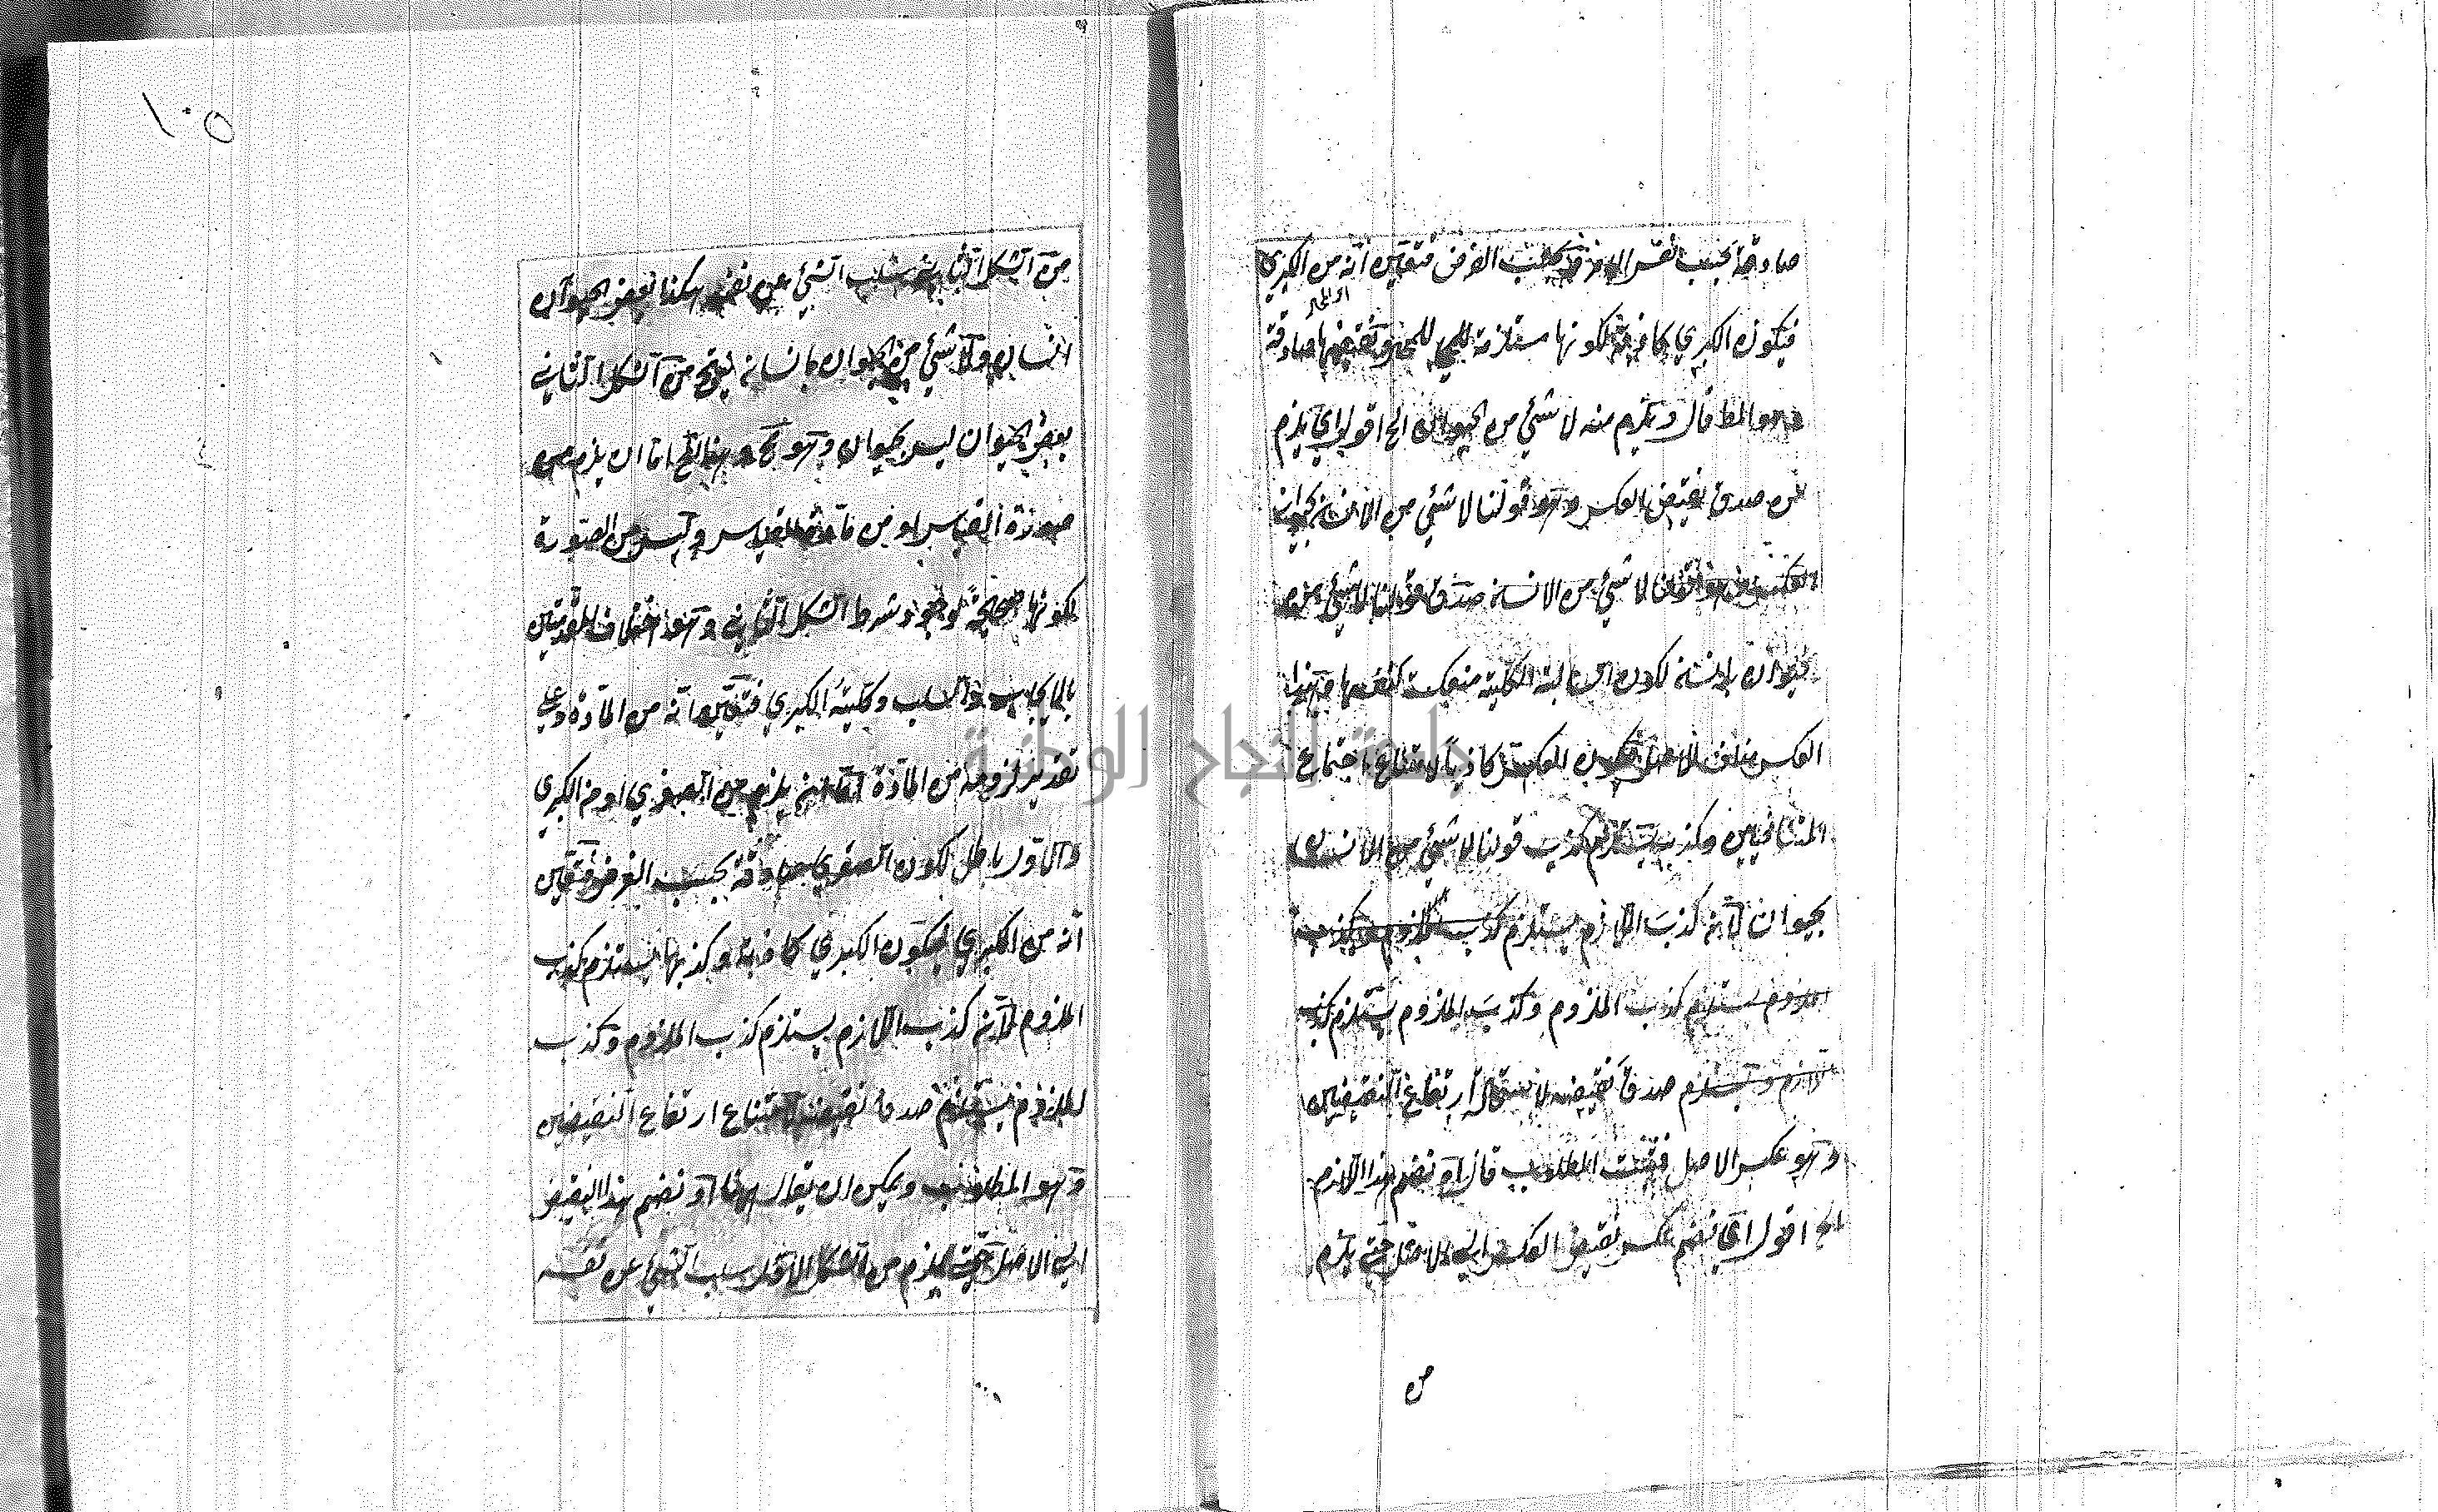 صادقة بحسب نفس الامر بحسب الفرض فتعين انه من الكبرى
فيكون الكبرى كاذبة لكونها مستلزمة للمحال ونقيضها صادقة
وهو المط قال ويلزم منه لا شيئ من الحيوان الخ اقول اي يلزم
من صدق نقيض العكس وهو قولنا لا شيئ من الانسان بحيوان
لا شيئ من الانسان صدق قولنا لا شيئ من
حيوان بانسان لكون السالبة الكلية منعكسة كنفسها وهذا
العكس مناف للاصل فيكون العكس كاذبا لامتناع اجتماع
المتنافيين وكذبه يستلزم كذب قولنا لا شيئ من الانسان
بحيوان لأن كذب اللازم يستلزم كذب الملزوم وكذب
الملزوم يستلزم كذب الملزوم وكذب الملزوم يستلزم كذب
اللازم ويستلزم صدق نقيضه لاستحالة ارتفاع النقيضين
وهو عكس الاصل فيثبت المطلوب قال او نضم هذا اللازم
الخ اقول اي نضم عكس نقيض العكس الى الاصل حتى يلزم
من
١٠٥
من الشكل الثاني سلب الشيئ عن نفسه هكذا بعض الحيوان
انسان ولا شيئ من الحيوان بانسان ينتج من الشكل الثاني
بعض الحيوان ليس بحيوان وهو مح وهذا المح اما ان يلزم من
صورة القياس او من مادة القياس وليس من الصورة
لكونها صحيحة لوجود شرط الشكل الثاني وهو اختلاف المقدمتين
بالايجاب والسلب وكلية الكبرى فتعين انه من المادة وعلى
تقدير لزومه من المادة اما ان يلزم من الصغرى او من الكبرى
والاول باطل لكون الصغرى صادقة بحسب الفرض فتعين
انه من الكبرى فيكون الكبرى كاذبة وكذبها يستلزم كذب
الملزوم لأن كذب اللازم يستلزم كذب الملزوم وكذب
الملزوم يستلزم صدق نقيضه لامتناع ارتفاع النقيضين
وهو المطلوب ويمكن ان يقال هنا او نضم هذا النقيض
الى الاصل حتى يلزم من الشكل الاول سلب الشيئ عن نفسه
جامعة النجاح الوطنية